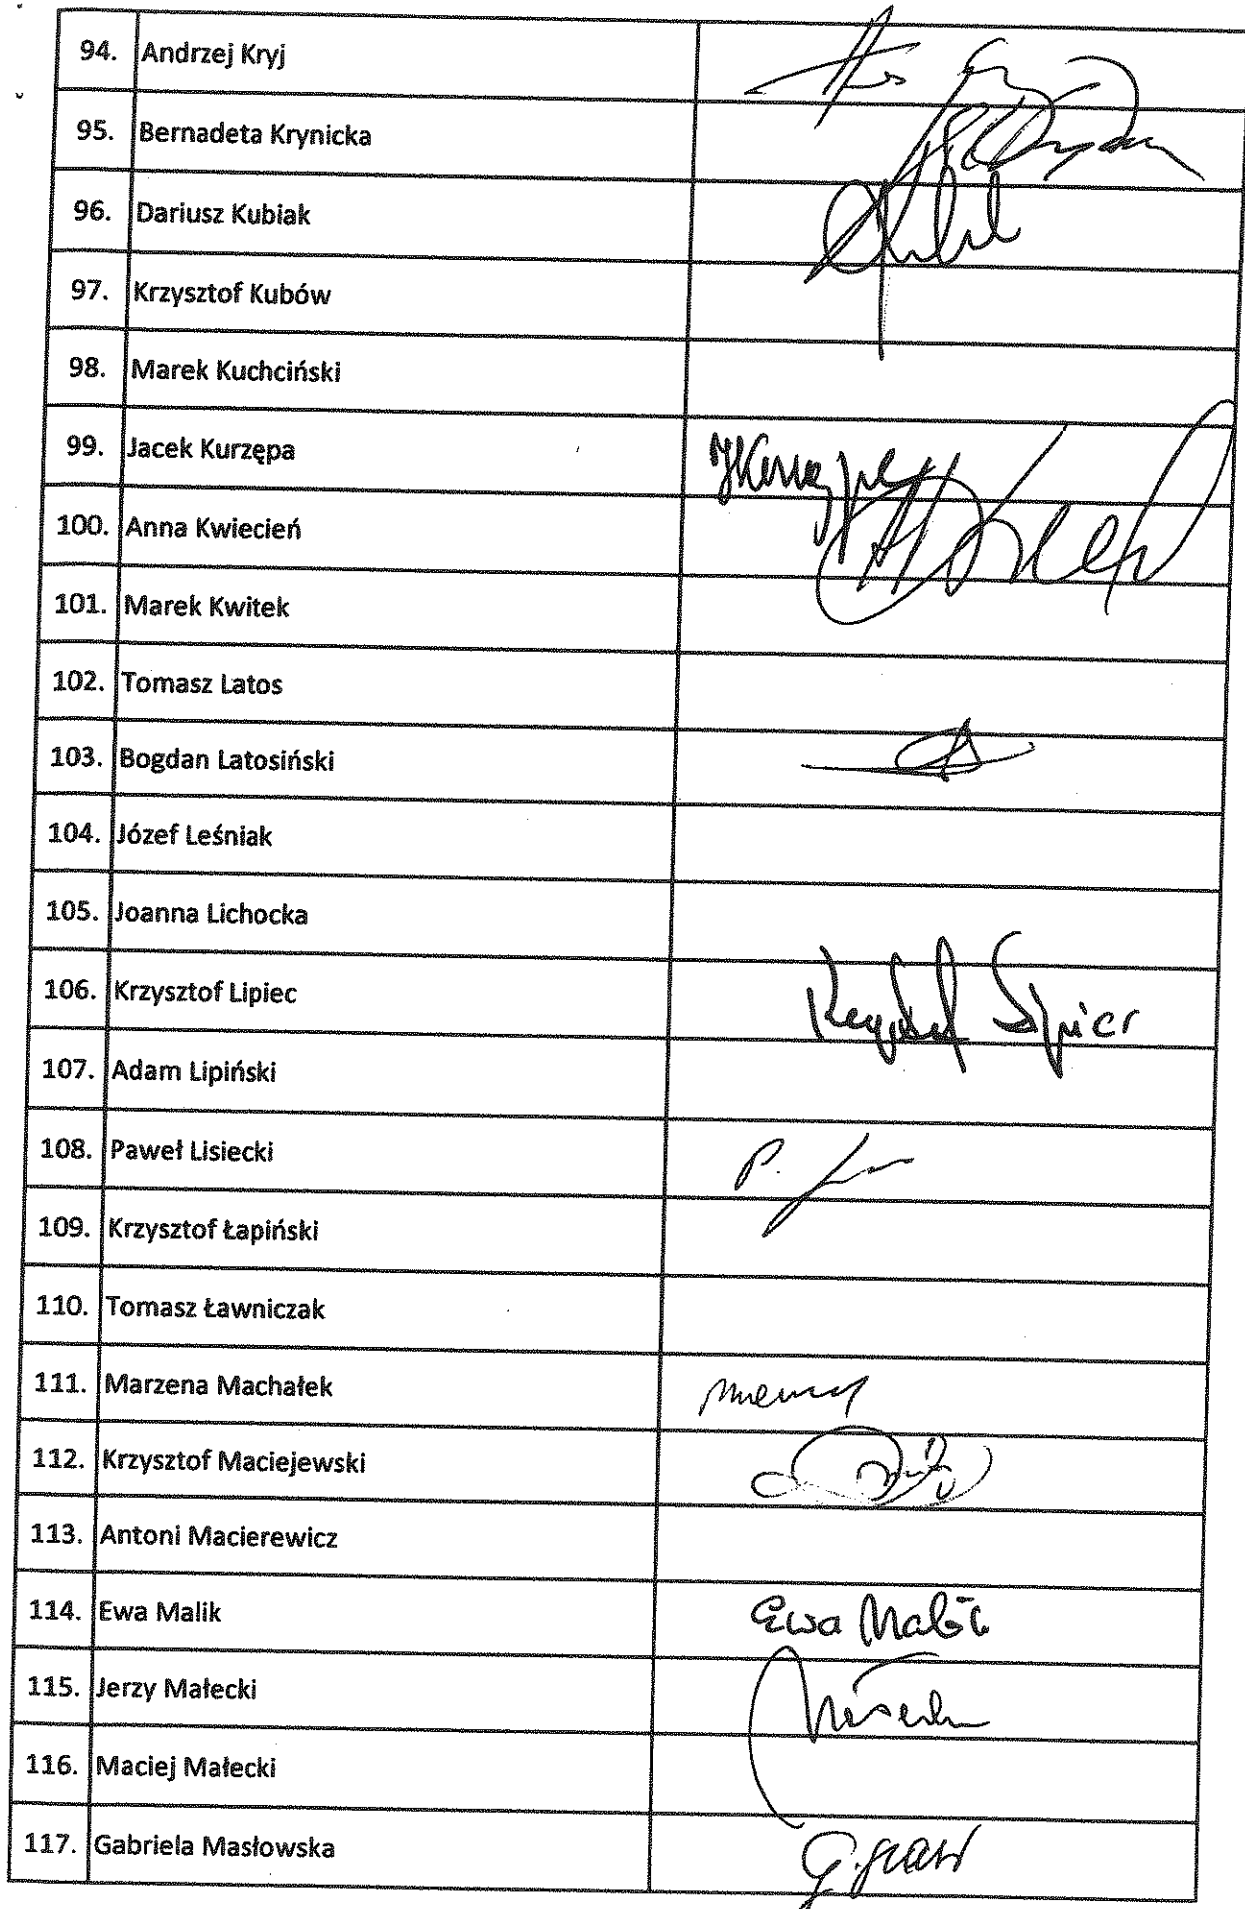 94. Andrzej Kryj
95. Bernadeta Krynicka
96. Dariusz Kubiak
97. Krzysztof Kubów
98. Marek Kuchciński
99. Jacek Kurzępa
100. Anna Kwiecień
101. Marek Kwitek
102. Tomasz Latos
103. Bogdan Latosiński
104. Józef Leśniak
105. Joanna Lichocka
106. Krzysztof Lipiec
107. Adam Lipiński
108. Paweł Lisiecki P.
109. Krzysztof Łapiński
110. Tomasz Ławniczak
111. Marzena Machałek
112. Krzysztof Maciejewski
113. Antoni Macierewicz
114. Ewa Malik Ewa Malik
115. Jerzy Małecki
116. Maciej Małecki
117. Gabriela Masłowska